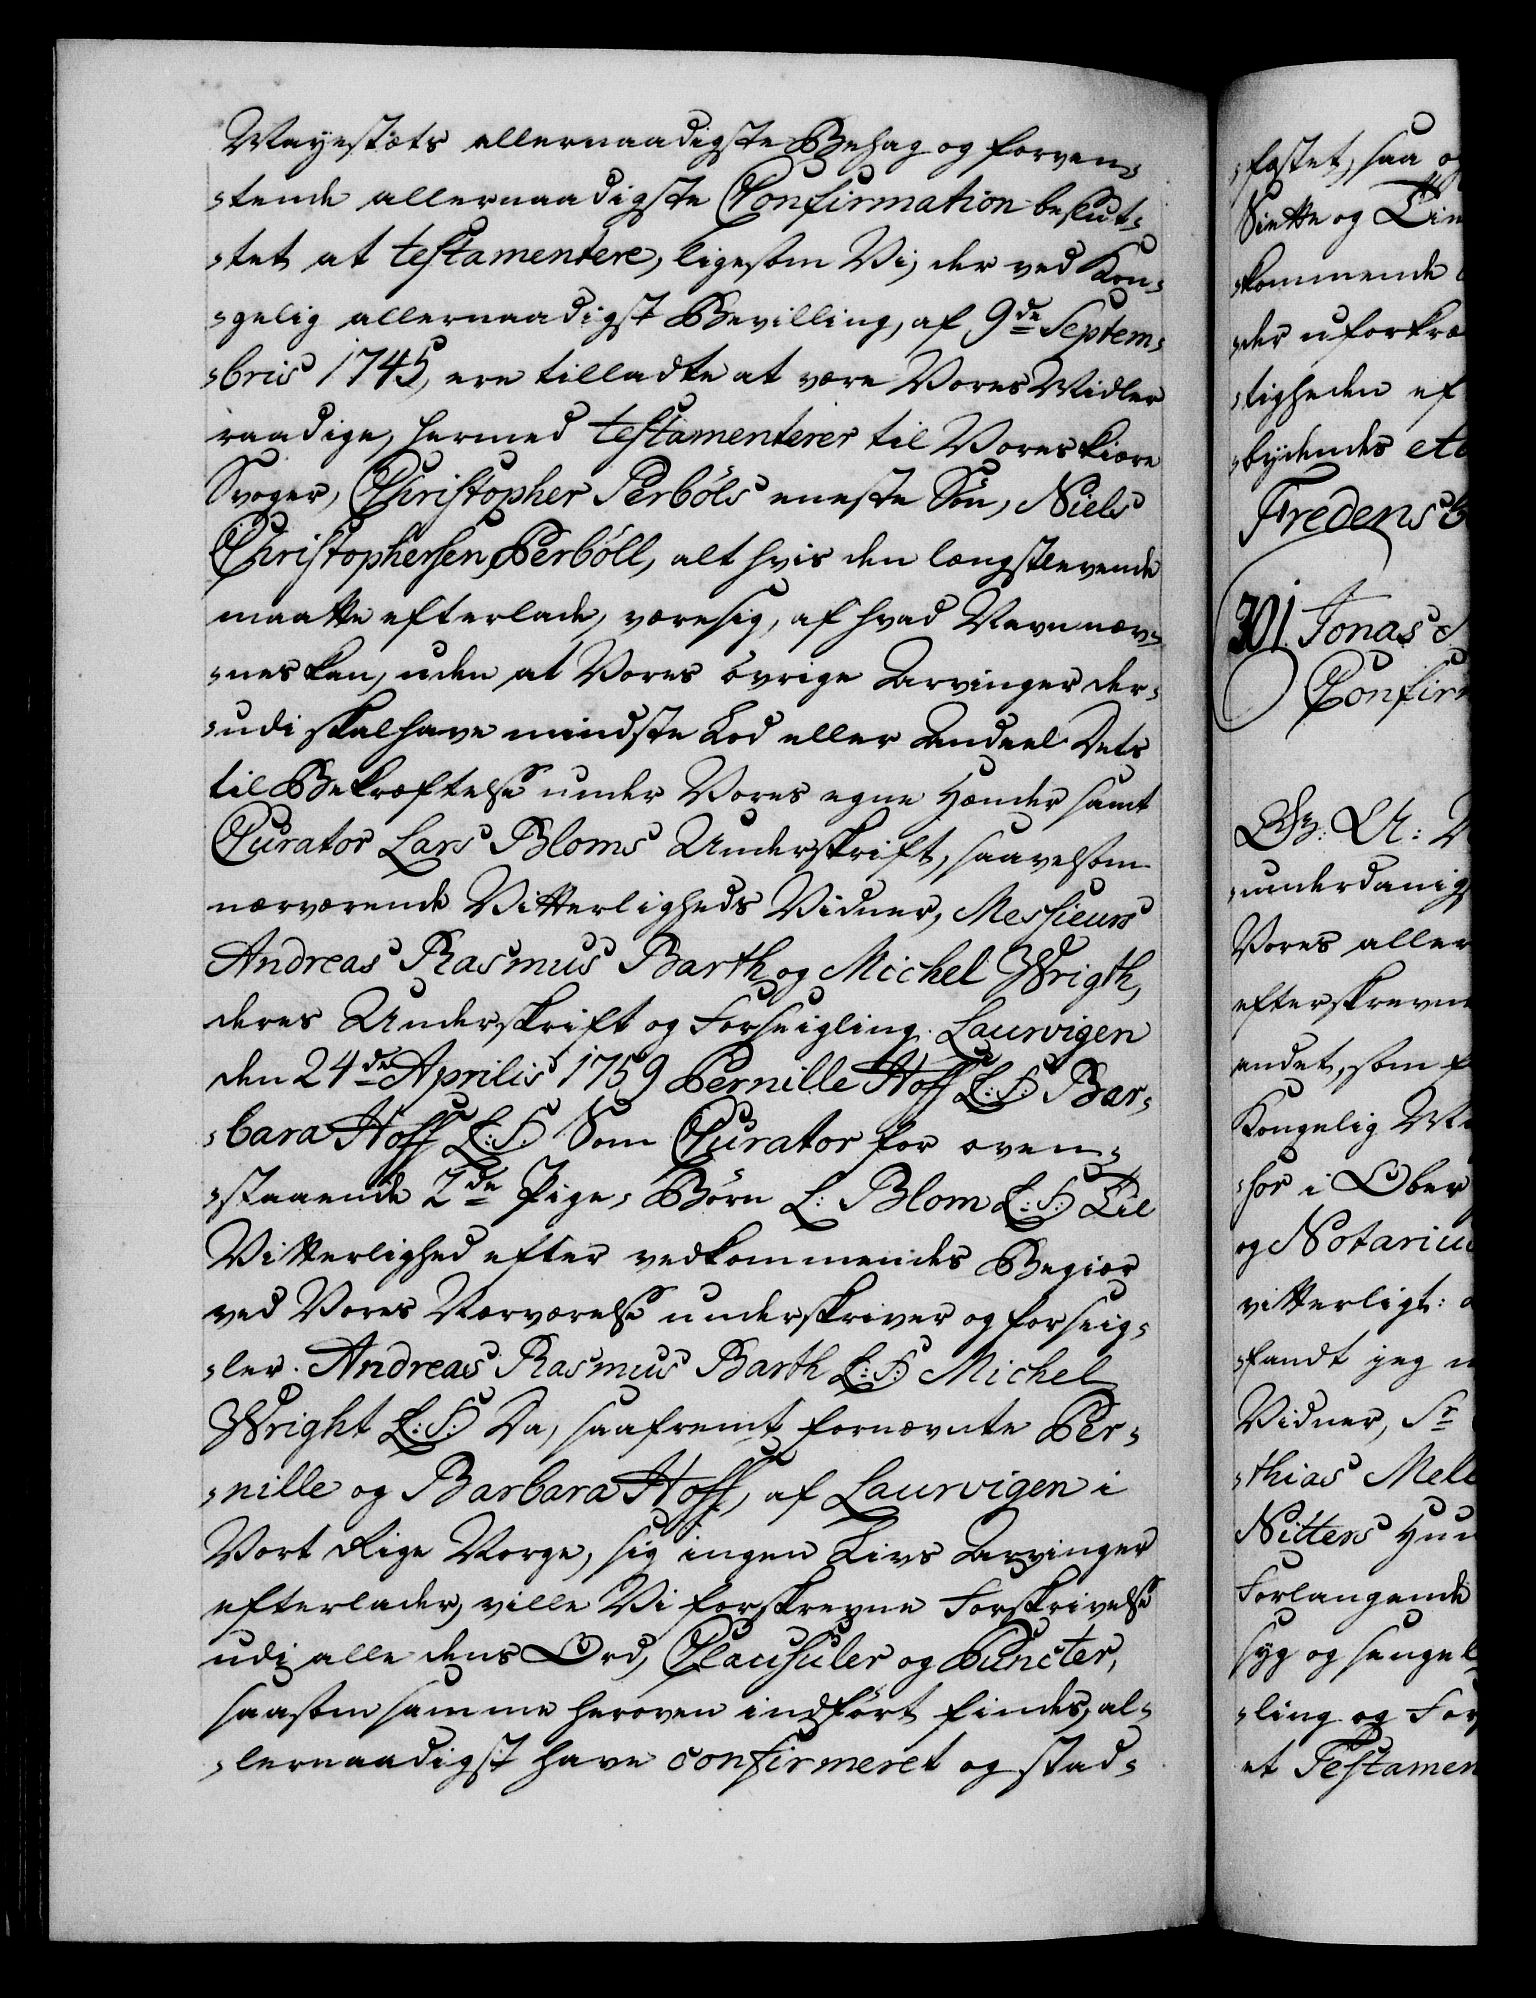 Mayestæts allernaadigste Behag og forven-
-tende allernaadigste Confirmation beslut-
-tet at testamentere, ligesom Vi, der ved Kon-
-gelig allernaadigst Bevilling, af 9de Septem-
-bris 1745, ere tilladte at være Vores Midler
raadige, hermed testamenterer til Vores kiære
Svoger, Christopher Perböls eneste Sön, Niels
Christophersen Perböll, alt hvis den længstlevende
maatte efterlade, være sig, af hvad Navn næv-
-nes kan, uden at Vores övrige Arvinger der-
-udi skal have mindste Lod eller Andeel Dets
til Bekræftelse under Vores egne Hænder samt
Curator Lars Bloms Underskrift, saavelsom
nærværende Vitterligheds Vidner, Messieurs
Andreas Rasmus Barth og Michel Wrigth,
deres Underskrift og Forseigling. Laurvigen
den 24de Aprilis 1759 Pernille Hoff L:S: Bar-
-bara Hoff L:S: Som Curator for oven-
-staaende 2de Pige-Börn L: Blom L:S: Til
Vitterlighed efter vedkommendes Begiær
ved Vores Nærværelse underskriver og forseig-
-ler. Andreas Rasmus Barth L:S: Michel
Wright L:S: Da, saafremt fornævnte Per-
-nille og Barbara Hoff, af Laurvigen i
Vort Rige Norge, sig ingen Livs Arvinger
efterlader, ville Vi forskrevne Forskrivelse
udi alle dens Ord, Clausuler og Puncter,
saasom samme heroven indfört findes, al-
-lernaadigst have confirmeret og stad-
-fæstet, saa og
Siette og Tin
-kommende
-der uforkræ
-tigheden ef
-bydendes etc
Fredensb
301. Jonas
Confir
Gr: Ut: V
-underdanig
Vores aller
efterskrevne
andet, som f
Kongelig Ma
-for i Ober
og Notarius
vitterligt: a
-fandt jeg
Vidner, Sr
-thias Mell
Nitters Huu
Forlangende
syg og senge
-ling og For
et Testamen